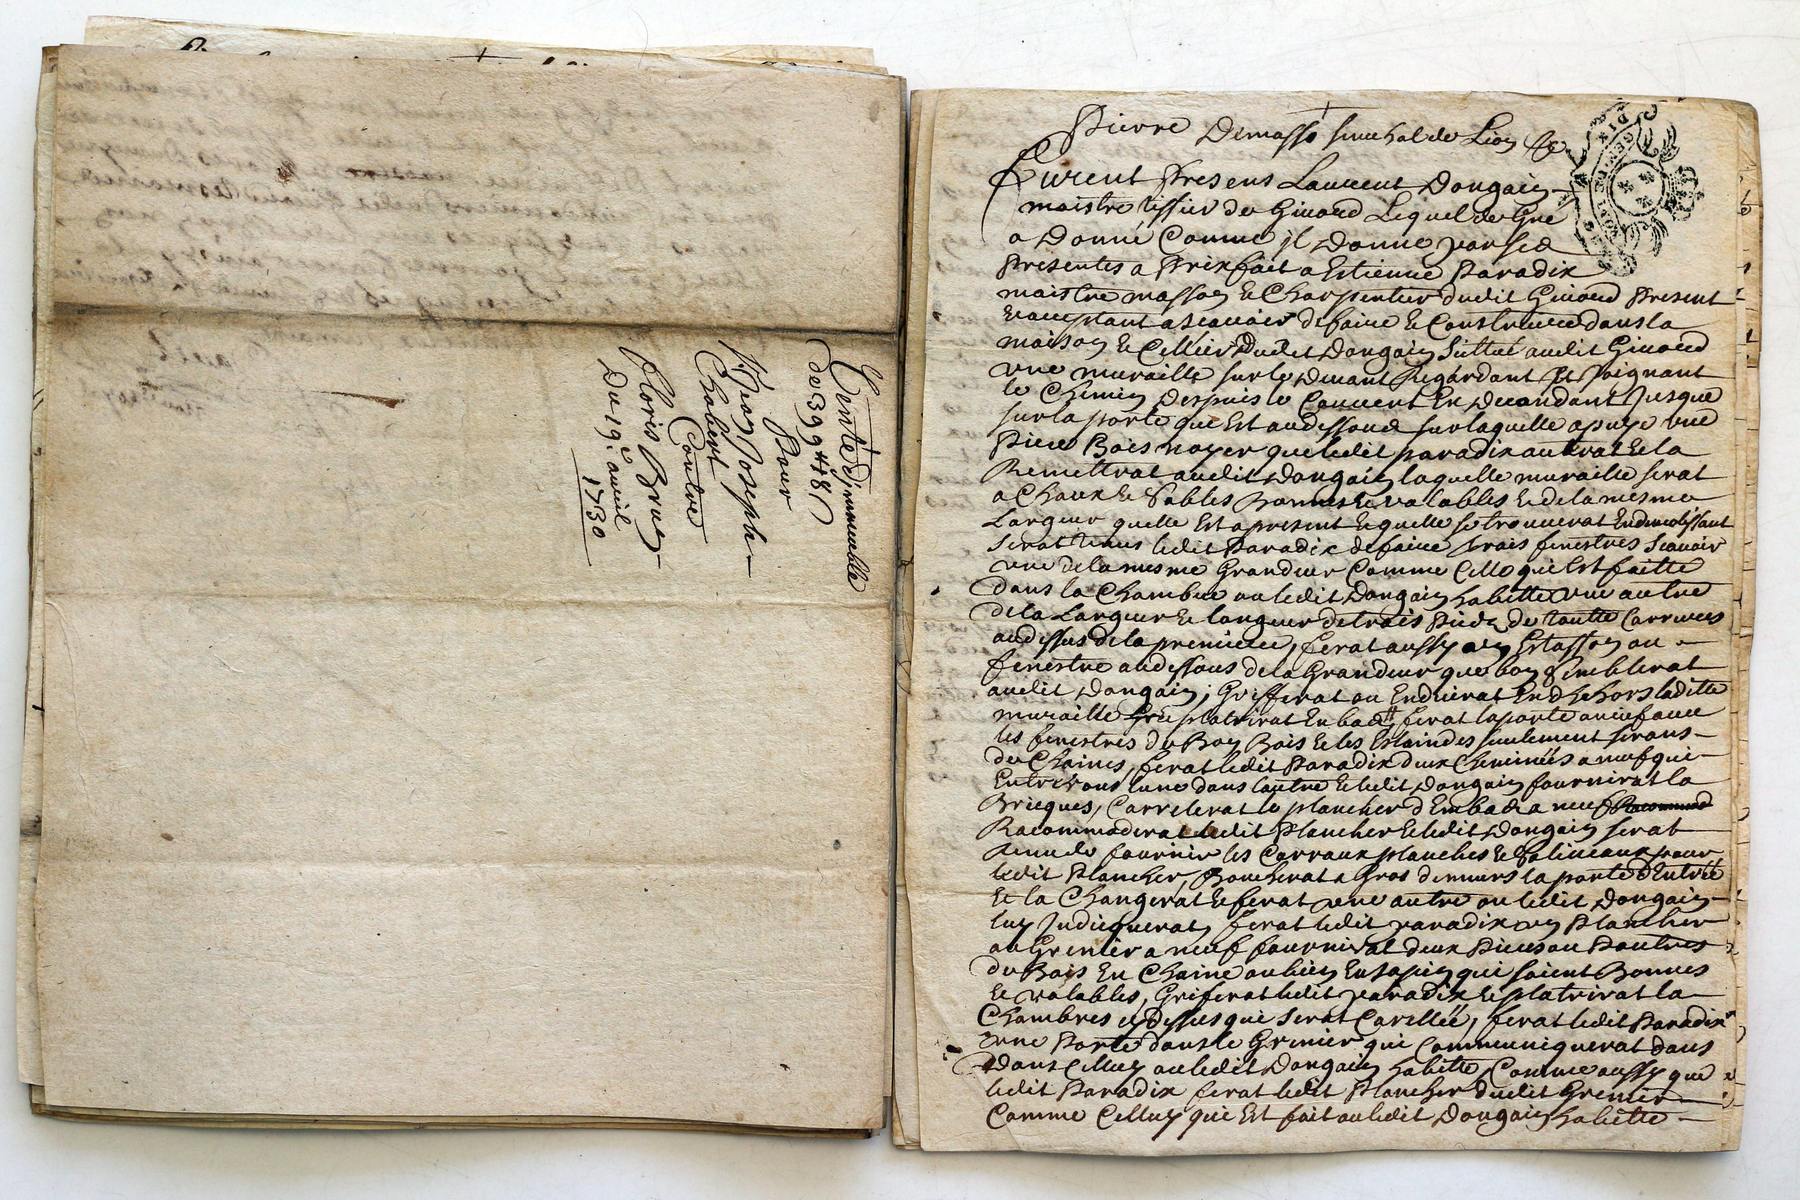 Vente d'immeuble
de 399 ₶ 18 s
Pour
Sr. Jean Joseph
Chabert
Contre
floris Brun
Du 19e. avril
1730
Pierre Demasso senechal de Lion &c
Furent Presens Laurent Dongain
maistre tissier de Givord Lequel de Gré
a Donné Comme il Donne par ses
Presentes a Prixfait a Estienne Paradix
maistre masson & Charpentier dudit Givord Present
& acceptant a scauoir de faire & Construire dans la
maison & Cellier Dudit Dongain Sittué audit Givord
vne muraille sur le deuant Regardant et Joignant
le Chemin despuis le Couuert En decendant Jusque
sur la porte que Est audessous sur laquelle apuye vne
Piece Bois noyer que ledit paradix auterat & la
Remettrat audit Dongain laquelle muraille serat
a Chaux & Sables Bonnes & valables & de la mesme
Largeur quelle Est apresent & quelle se trouuerat Endemolissant
serat tenus ledit Paradix de faire trois fenestres scauoir
vne de la mesme Grandeur Comme Celle que Est faitte
dans la Chambre ou ledit Dongain habitte vne autre
de la Largeur & longueur de trois Pieds de toutte Carrures
audessus de la premiere, ferat aussy vn Estasson ou
fenestre audessous de la Grandeur que bon semblerat
audit Dongain, Grifferat ou Enduirat En dehors laditte
muraille & replatrirat En bas, ferat la porte
les fenestres de Boy Bois & les seulement serons
de Chaines, ferat ledit Paradix deux Cheminées a neuf qui
Entrerons lune dans lautre & ledit Dongain fournirat la
Bricques, Carrelerat le plancher d'Enbas a neuf
Racommoderat ledit Plancher & ledit Dongain serat
tenu de fournir les Carraux planches & Saliueaux pour
ledit Plancher, Boucherat a Gros de murs la porte d'Entrée
& la Changerat & ferat vne autre ou ledit Dongain
luy Indicquerat, ferat ledit paradix vn Plancher
au Grenier a neuf fournirat deux Pieces ou Poutres
de Bois En Chaine ou bien En sapin qui soient Bonnes
& valables, Griferat ledit paradix & platrirat la
Chambres cy dessus qui serat Carellée, ferat ledit Paradix
vne Porte dans le Grenier qui Communiquerat dans
dans Celluy ou ledit Dongain habitte, Comme aussy que
ledit Paradix ferat ledit Plancher dudit Grenier
Comme Celluy qui Est fait ou ledit Dongain habitte